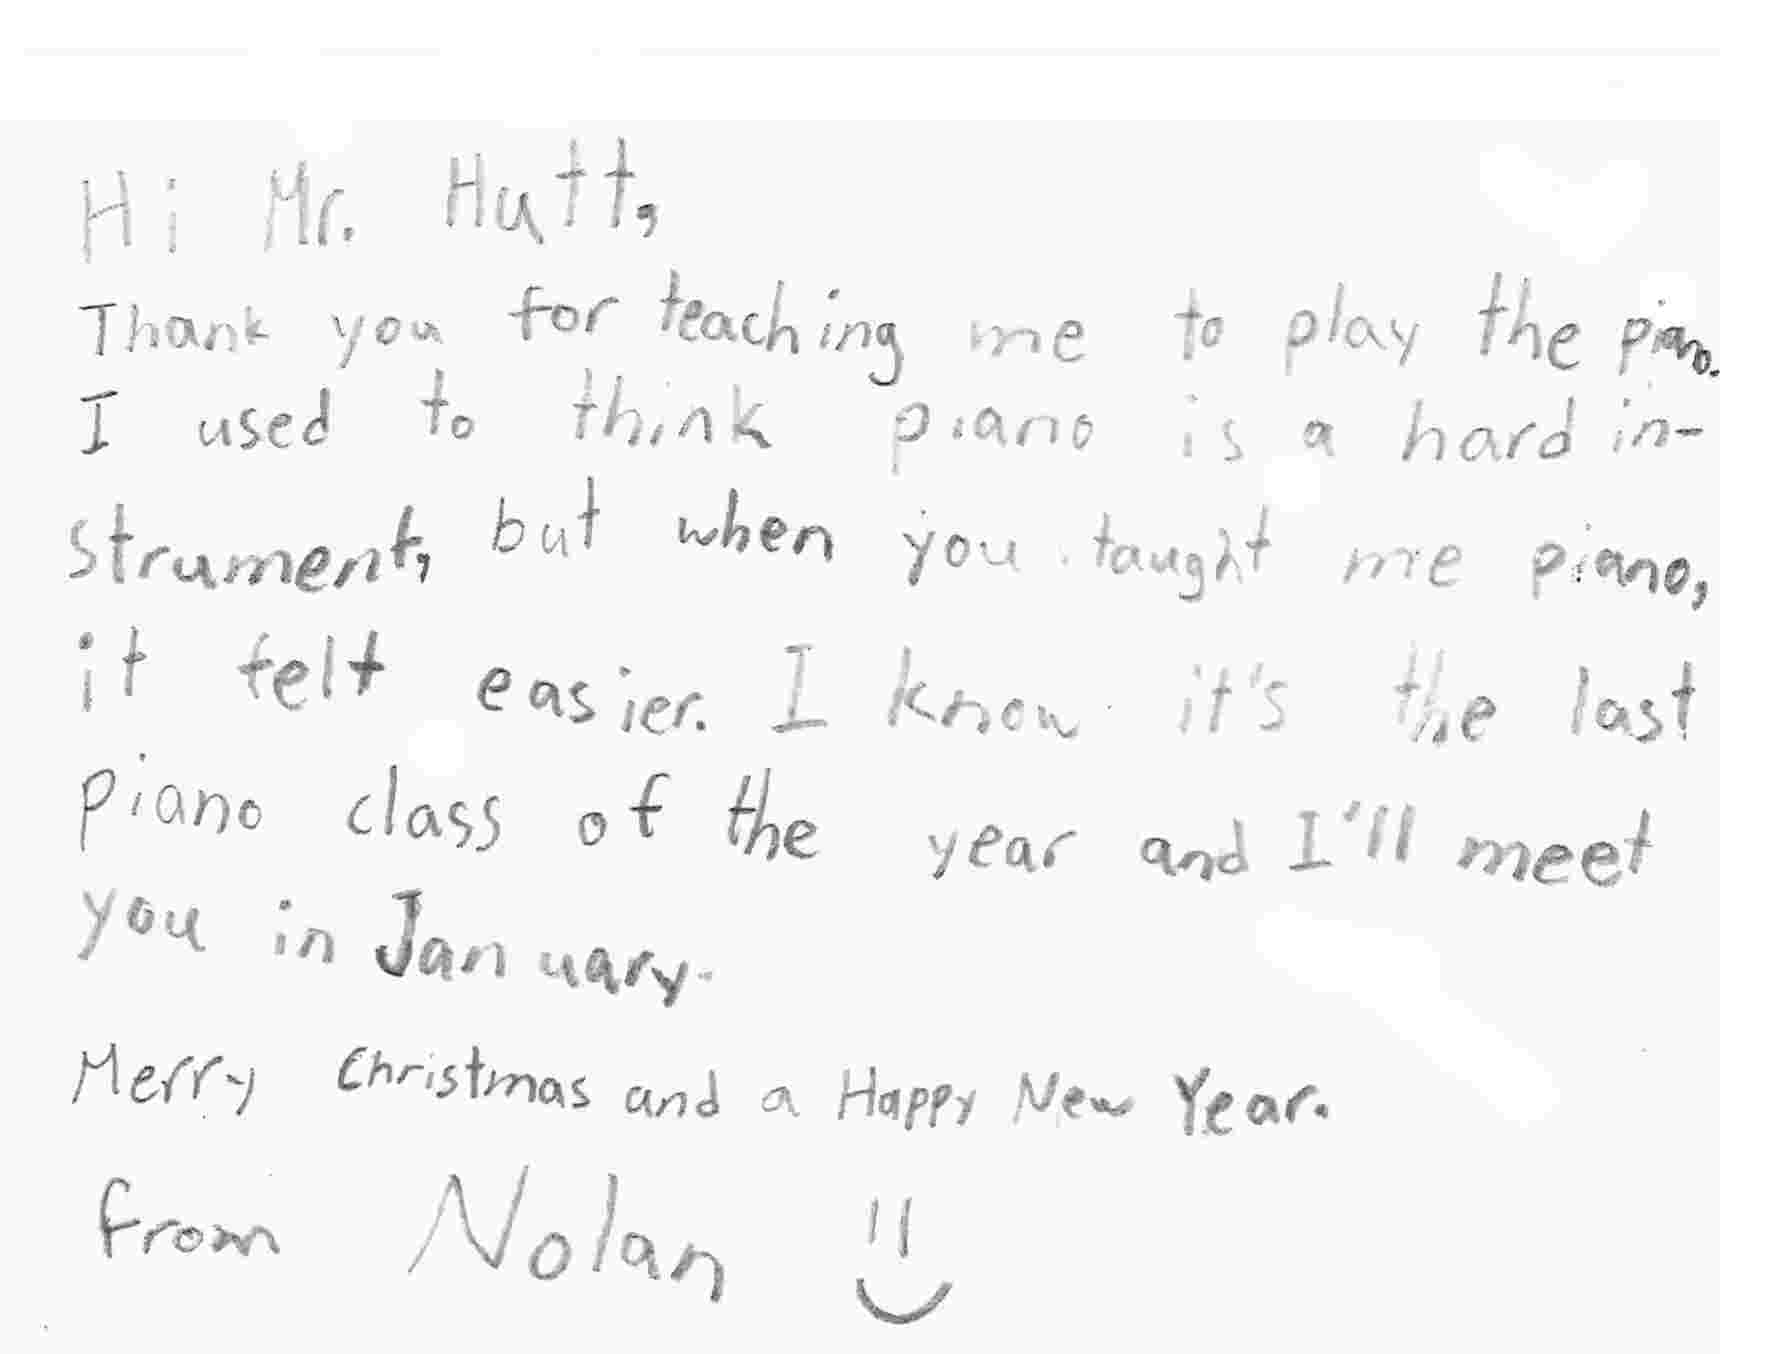 Hi Mr. Hutt,
Thank you for teaching me to play the piano.
I used to think piano is a hard in-
strument, but when you taught me piano,
it felt easier. I know it's the last
piano class of the year and I'll meet
you in January.
Merry Christmas and a Happy New Year.
from Nolan